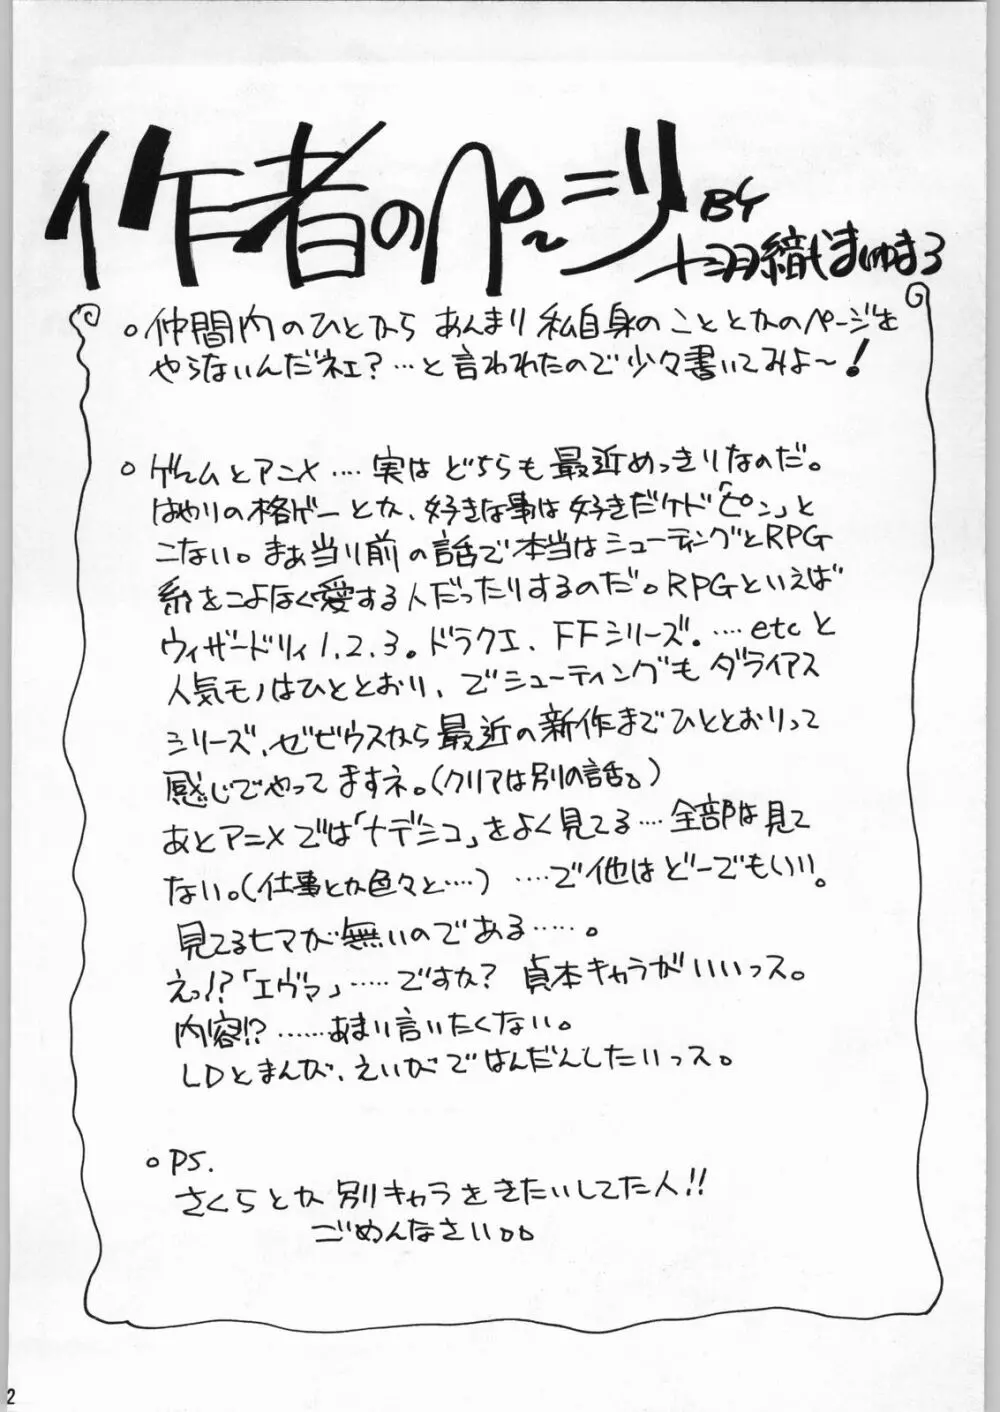 作者のペ〜ジ
BY
十三月織まゆまろ
○仲間内のひとから あんまり 私自身の こととかのページを
やらないんだネェ?…と言われたので少々書いてみよ〜!
○ゲームとアニメ‥‥実はどちらも最近めっきりなのだ。
はやりの格ゲーとか、好きな事は好きだケド「ピン」と
こない。まあ当り前の話で本当はシューティングとRPG
系をこよなく愛する人だったりするのだ。RPGといえば
ウィザードリィ1.2.3。ドラクエ、FFシリーズ。‥‥etcと
人気モノはひととおり、でシューティングも ダライアス
シリーズ、ゼビウスなら最近の新作までひととおりって
感じでやってますネ。(クリアは別の話。)
あとアニメでは「ナデシコ」をよく見てる‥‥全部は見て
ない。(仕事とか色々と‥‥) ‥‥で他はどーでもいい。
見てるヒマが無いのである‥‥‥。
えっ!?「エヴァ」‥‥‥ですか? 貞本キャラがいいっス。
内容!?………あまり言いたくない。
LDとまんが、えいがではんだんしたいっス。
○PS.
さくらとか別キャラをきたいしてた人!!
ごめんなさい。。
2